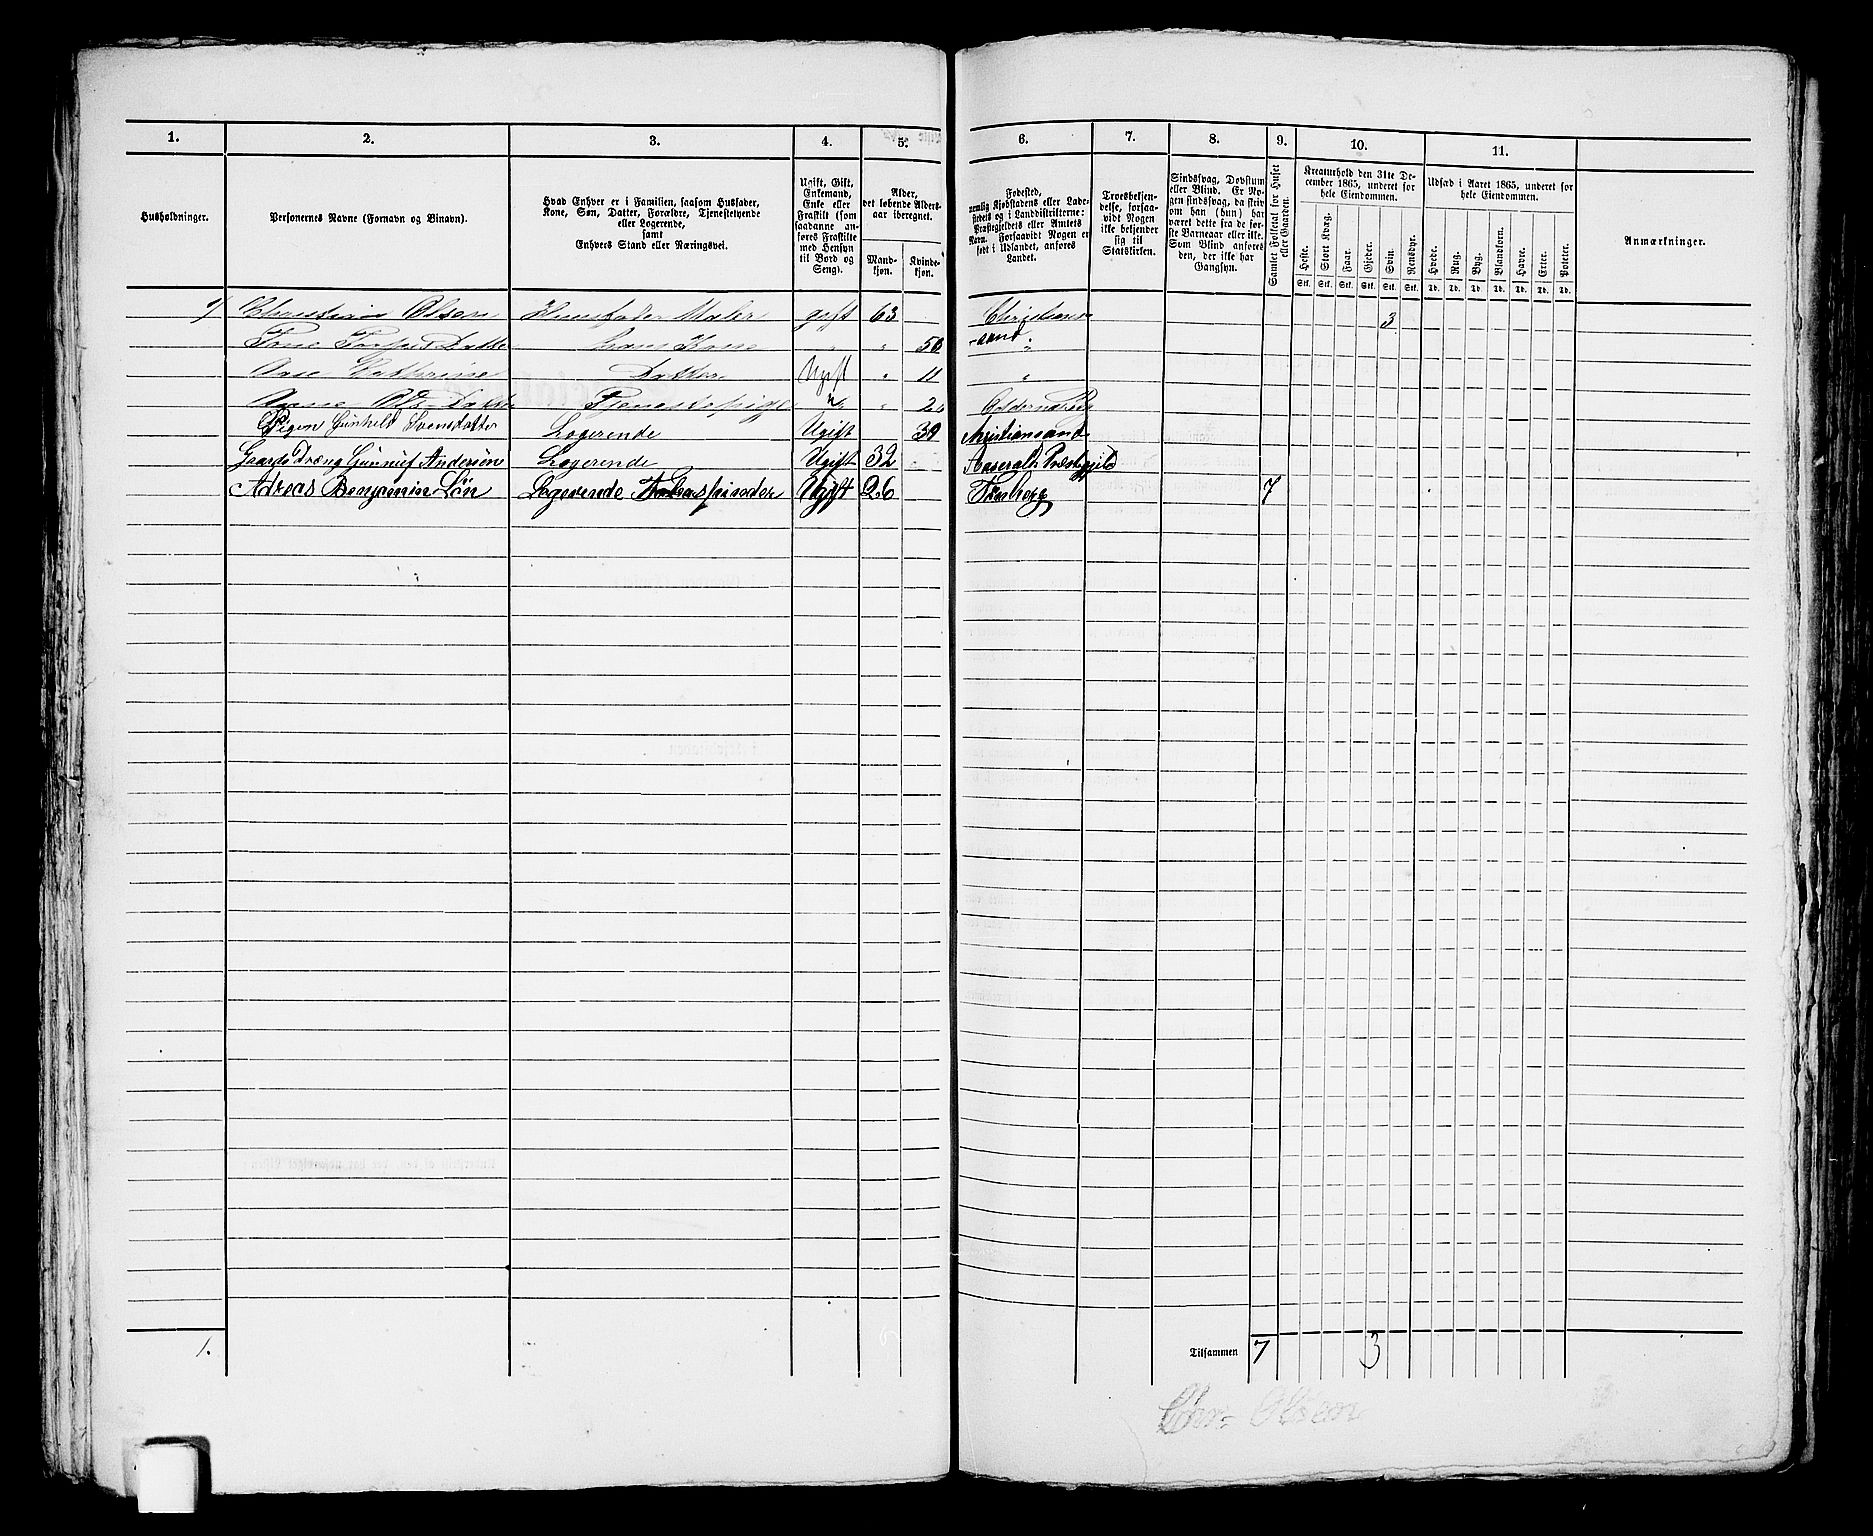 1. 2. 3. 4. 5. 6. 7. 8. 9. 10. 11.
Husholdninger.
Personernes Navne (Fornavn og Binavn).
Hvad Enhver er i Familien, saasom Husfader,
Kone, Søn, Datter, Forældre, Tjenestetyende
eller Logerende,
samt
Enhvers Stand eller Næringsvei.
Ugift, Gift,
Enkemand,
Enke eller
Fraskilt (som
saadanne an-
føres Fraskilte
med Hensyn
til Bord og
Seng).
Alder,
det løbende Alders-
aar iberegnet.
Mand-
kjøn.
Kvinde-
kjøn.
Fødested,
nemlig Kjøbstadens eller Lade-
stedets og i Landdistrikterne:
Præstegjeldets eller Amtets
Navn. Forsaavidt Nogen er
født i Udlandet, anføres
Landet.
Troesbekjen-
delse, forsaa-
vidt Nogen
ikke bekjender
sig til
Statskirken.
Sindssvag, Døvstum
eller Blind. Er No-
gen sindssvag, da skriv
om han (hun) har
været dette fra de før-
ste Barneaar eller ikke.
Som Blind anføres
den, der ikke har
Gangsyn.
Samlet Folketal for Huset
eller Gaarden.
Kreaturhold den 31te De-
cember 1865, underet for
hele Eiendommen.
Heste. Stort Kvæg. Faar. Gjeder. Svin. Rensdyr.
Stk. Stk. Stk. Stk. Stk. Stk.
Udsæd i Aaret 1865, underet for
hele Eiendommen.
Hvede. Rug. Byg. Blandkorn. Havre. Erter. Poteter.
Td. Td. Td. Td. Td. Td. Td.
Anmærkninger.
Christian Olsen Huusfader Maler gift 63 Christian- 3
Datter hans Kone " " -sand
Cathrine Datter Ugift " 11 "
Datter Tjenestepige " "
Pigen Gunhild Svensdatter Logerende Ugift 39 Christiansand
Gaards Dræng Gunnuf Andersen Logerende Ugift 32 Aaseralh Præstegjeld
Adreas Benjamin Løn Logerende Ugift 26 7
1. Tilsammen 7 3
Chr. Olsen